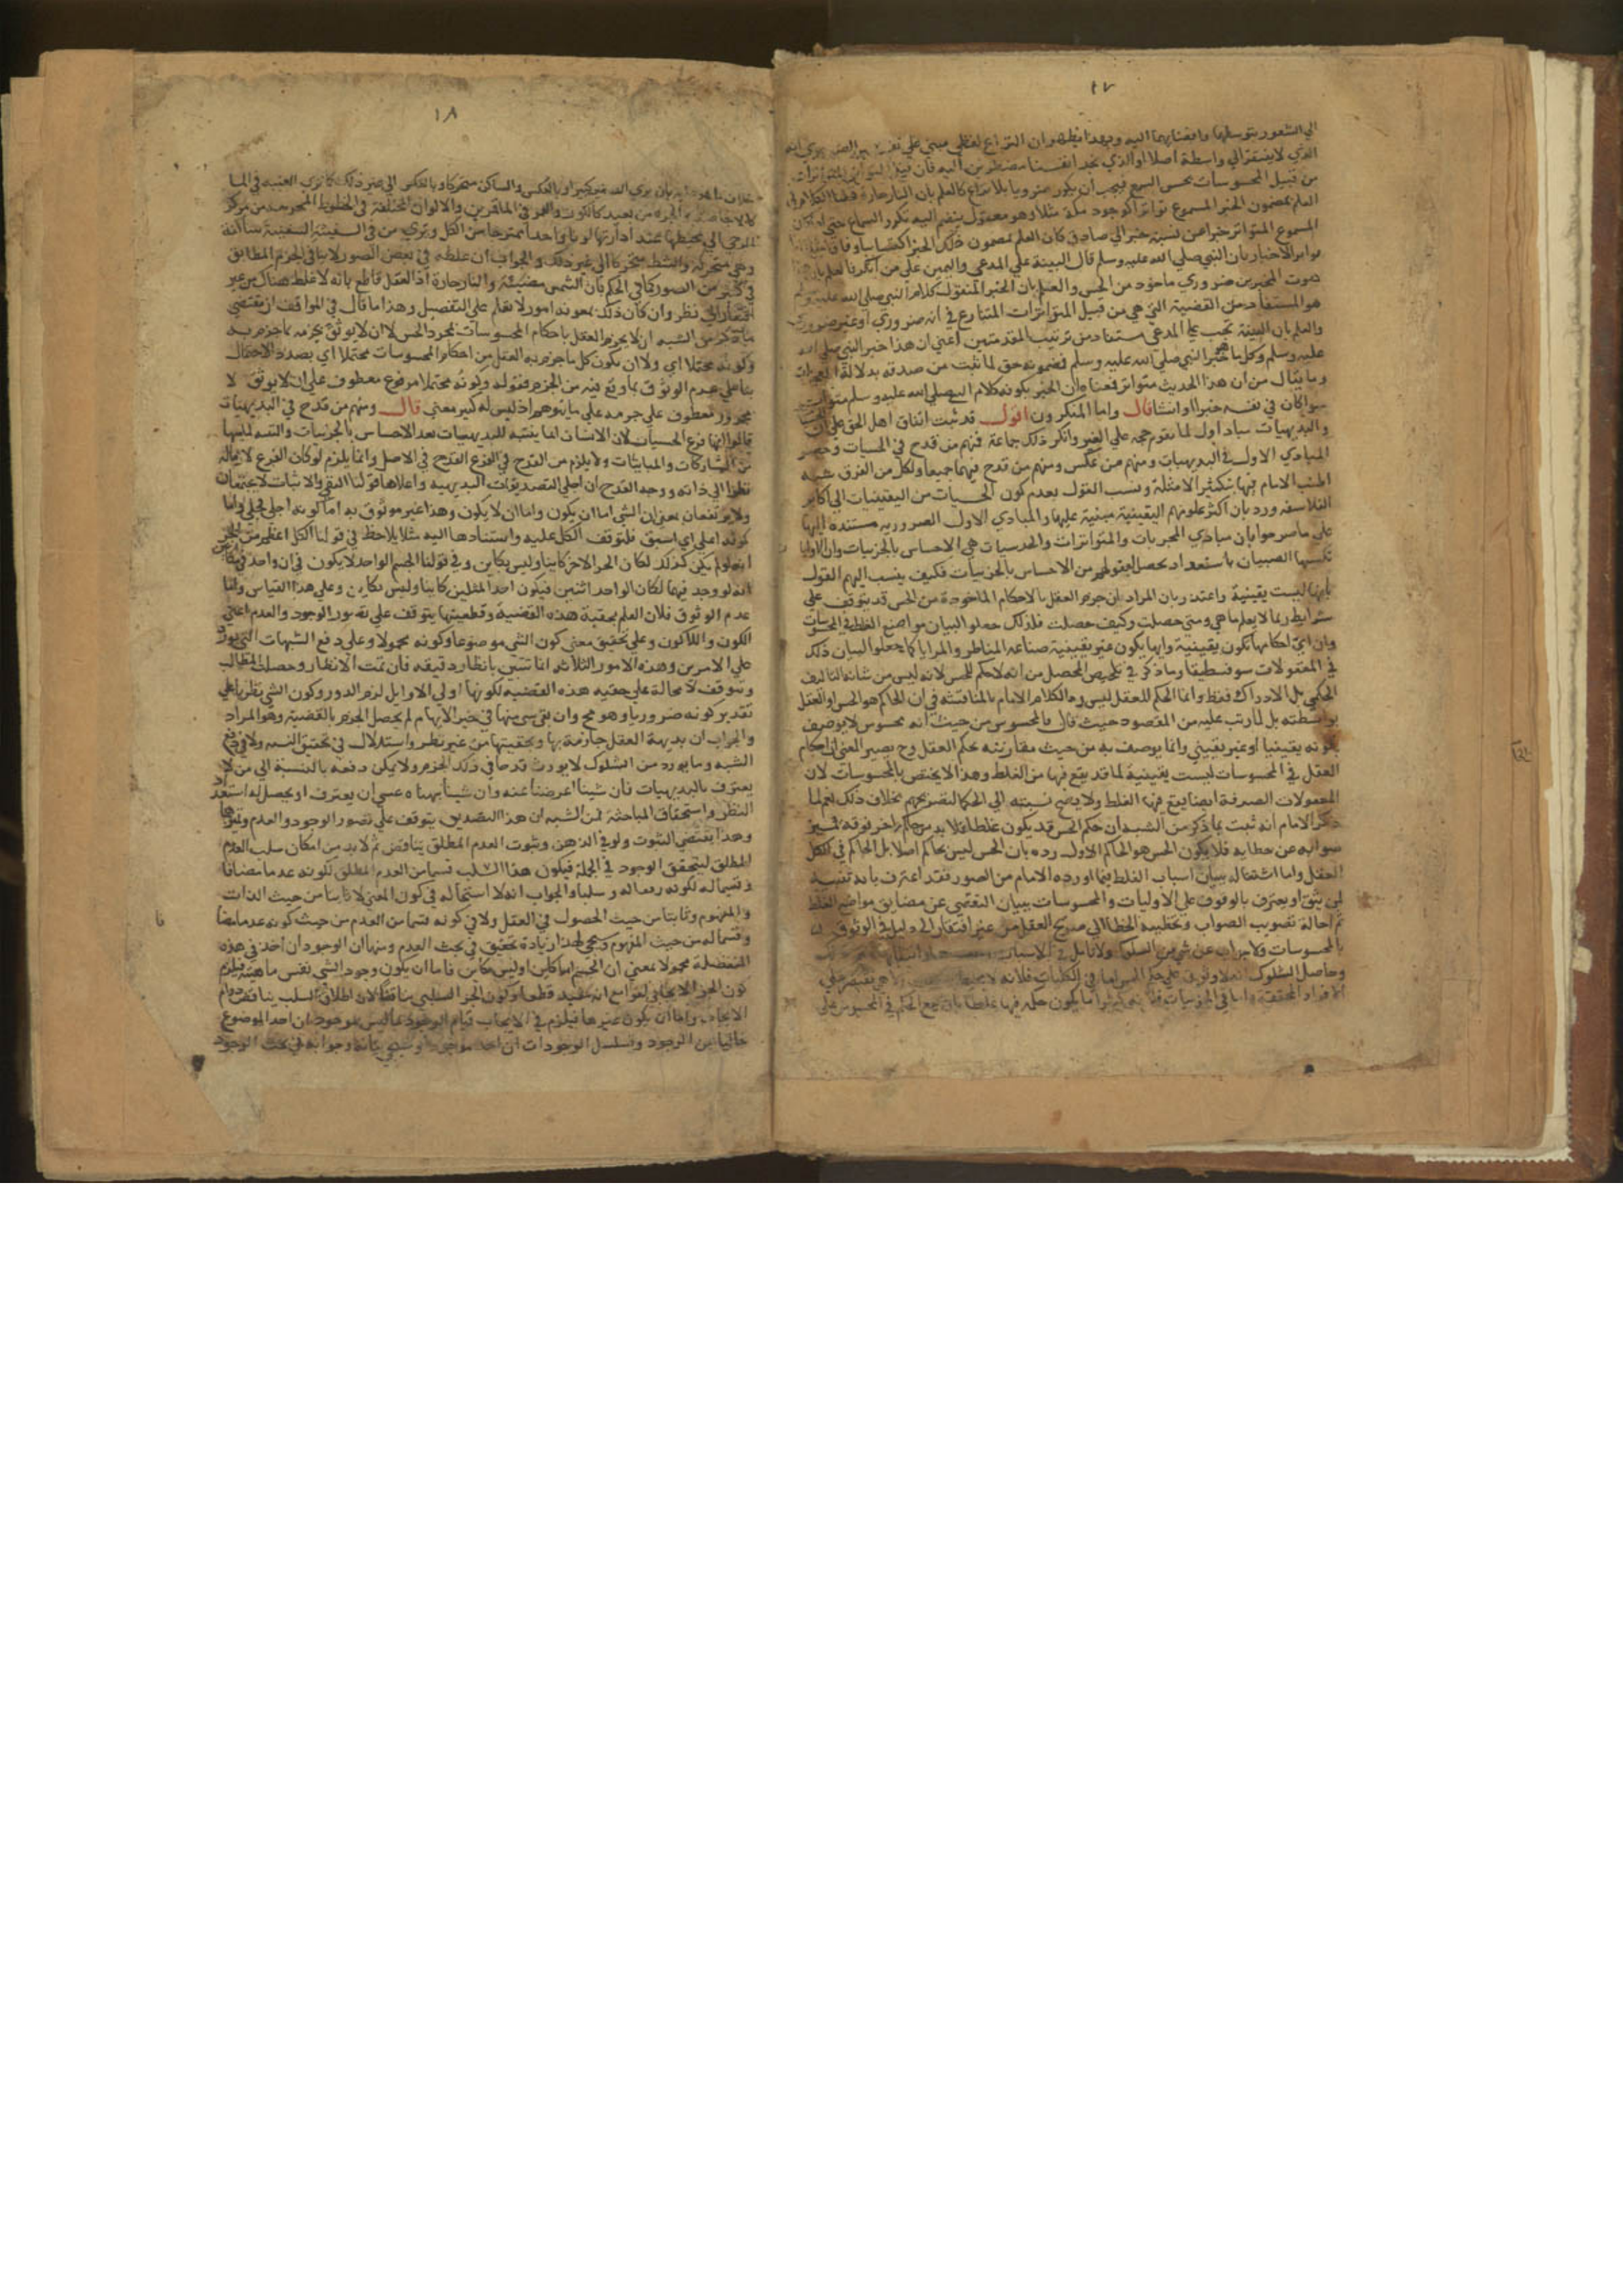 ١٧
الي الشعور بتوسطها وافضائهما اليه وبهذا يظهر ان النزاع لفظي مبني علي تفسير الضروري انه
الذي لا يفتقر الي واسطة اصلا او الذي نجد انفسنا مضطرين اليه فان قيل المتواترات
من قبيل المحسوسات بحس السمع فيجب ان يكون ضروريا بلا نزاع كالعلم بان النار حارة قلنا الكلام في
العلم بمضمون الخبر المسموع تواترا كوجود مكة مثلا وهو معقول ينضم اليه تكرر السماع حتي
المسموع المتواتر خبرا عن نسبة خبر الي صادق كان العلم بمضمون ذلك الخبر اكتسابيا وفاقا
تواتر الاخبار بان النبي صلي الله عليه وسلم قال البينة علي المدعي واليمين علي من انكر فالعلم بان
صوت المخبرين ضروري ماخوذ من الحس والعلم بان الخبر المنقول كلام النبي صلي الله عليه وسلم
هو المستفاد من القضية التي هي من قبيل المتواترات المتنازع في انه ضروري او غير ضروري
والعلم بان البينة تجب علي المدعي مستفاد من ترتيب المقدمتين اعني ان هذا خبر النبي صلي الله
عليه وسلم وكل ما هو خبر النبي صلي الله عليه وسلم فمضمونه حق لما ثبت من صدقه بدلالة المعجزات
وما يقال من ان هذا الحديث متواتر فمعناه ان الخبر بكونه كلام النبي صلي الله عليه وسلم متواتر
سوا كان في نفسه خبرا او انشا قال واما المنكرون اقول قد ثبت اتفاق اهل الحق علي ان
والبديهيات مباد اول لما يقوم حجة علي الغير وانكر ذلك جماعة فمنهم من قدح في الحسيات وحصر
المبادي الاول في البديهيات ومنهم من عكس ومنهم من قدح فيهما جميعا ولكل من الفرق شبه
اطنب الامام فيها بتكثير الامثلة ونسب القول بعدم كون الحسيات من اليقينيات الي اكابر
الفلاسفه ورد بان اكثر علومهم اليقينية مبنية عليها والمبادي الاول الضروريه مستنده اليها
علي ما صرحوا بان مبادي المجربات والمتواترات والحدسيات هي الاحساس بالجزييات وان الاوليات
تكسبها الصبيان باستعداد يحصل لعقولهم من الاحساس بالجزييات فكيف ينسب اليهم القول
بانها ليست يقينية واعتذر بان المراد ان جزم العقل بالاحكام الماخوذة من الحس قد يتوقف علي
شرايط ربما لا يعلم ما هي ومتي حصلت وكيف حصلت فلذلك جعلوا لبيان مواضع الغلط في المحسوسات
وان اي احكامها تكون يقينية وايها يكون غير يقينية صناعة المناظر والمرايا كما جعلوا لبيان ذلك
في المعقولات سوفسطيقا وما ذكر في تلخيص المحصل من انه لا حكم للحس لانه ليس من شانه التاليف
الحكمي بل الادراك فقط وانما الحكم للعقل ليس ردا لكلام الامام بالمناقشه في ان الحاكم هو الحس او العقل
بواسطته بل لما رتب عليه من المقصود حيث قال فالمحسوس من حيث انه محسوس لا يوصف
بكونه يقينيا او غير يقيني وانما يوصف به من حيث مقارنته بحكم العقل وح يصير المعني ان احكام
العقل في المحسوسات ليست يقينية لما قد يقع فيها من الغلط وهذا لا يختص بالمحسوسات لان
المعقولات الصرفة ايضا يقع فيها الغلط ولا يصح نسبته الي الحكما لتصريحهم بخلاف ذلك ثم لما
ذكر الامام انه ثبت بما ذكر من الشبه ان حكم الحس قد يكون غلطا فلا بد من حاكم اخر فوقه لتمييز
صوابه عن خطايه فلا يكون الحس هو الحاكم الاول رده بان الحس ليس بحاكم اصلا بل الحاكم في الكل
العقل واما اشتغاله ببيان اسباب الغلط فيما اورده الامام من الصور فقد اعترف بانه تنبيه
لمن يثق او يعترف بالوقوف علي الاوليات والمحسوسات ببيان التفصي عن مضايق مواضع الغلط
ثم احالة تصويب الصواب وتخطئة الخطا الي صريح العقل من غير افتقار الي دليل في الوثوق
بالمحسوسات ولا جواب عن شي من الشكوك
وحاصل الشكوك انه لا وثوق علي حكم الحس اما في الكليات فلانه
الافراد المحققة واما في الجزييات فلانه كثيرا ما يكون حكمه فيها غلطا بان يقع الحكم في المحسوس علي
١٨
خلاف ما هو عليه بان يري الصغير كبيرا وبالعكس والساكن متحركا وبالعكس الي غير ذلك كما تري العنبة في الما
كالاجاصة والجرة من بعيد كالكوز والقمر في الماء قمرين والالوان المختلفة في الخطوط المخرجة من مركز
الرحي الي محيطها عند ادارتها لونا واحدا ممتزجا من الكل ويري من في السفينة السفينة ساكنة
وهي متحركة والشط متحركا الي غير ذلك والجواب ان غلطه في بعض الصور لا ينافي الجزم المطابق
في كثير من الصور كما في الحكم بان الشمس مضيئة والنار حارة اذ العقل قاطع بانه لا غلط هناك من غير
افتقار الي نظر وان كان ذلك بمعونة امور لا تعلم علي التفصيل وهذا ما قال في المواقف ان مقتضي
ما ذكر من الشبه ان لا يجزم العقل باحكام المحسوسات لمجرد الحس لا ان لا يوثق بجزمه بما جزم به
وكونه محتملا اي ولا ان يكون كل ما جزم به العقل من احكام المحسوسات محتملا اي بصدد الاحتمال
بنا علي عدم الوثوق بما وقع فيه من الجزم فقوله وكونه محتملا مرفوع معطوف علي ان لا يوثق لا
مجرور معطوف علي جزمه علي ما يتوهم اذ ليس له كبير معني قال ومنهم من قدح في البديهيات
قالوا انها فرع الحسيات لان الانسان انما يتنبه للبديهيات بعد الاحساس بالجزييات والتنبه لما بينها
من المشاركات والمباينات ولا يلزم من القدح في الفرع القدح في الاصل وانما يلزم لو كان الفرع لازما له
نظرا الي ذاته ووجه القدح ان اجلي التصديقات البديهية واعلاها قولنا النفي والاثبات لا يجتمعان
ولا يرتفعان بمعني ان الشي اما ان يكون واما ان لا يكون وهذا غير موثوق به اما كونه اجلي فجلي واما
كونه اعلي اي اسبق فلتوقف الكل عليه واستنادها اليه مثلا يلاحظ في قولنا الكل اعظم من الجزء
انه لو لم يكن كذلك لكان الجزء الاخر كاينا وليس بكاين وفي قولنا الجسم الواحد لا يكون في ان واحد في مكانين
انه لو وجد فيهما لكان الواحد اثنين فيكون احد المثلين كاينا وليس بكاين وعلي هذا القياس واما
عدم الوثوق فلان العلم بحقية هذه القضية وقطعيتها يتوقف علي تصور الوجود والعدم اعني
الكون واللاكون وعلي تحقيق معني كون الشي موضوعا وكونه محمولا وعلي دفع الشبهات التي تورد
علي الامرين وهذه الامور الثلاثه انما تتبين بانظار دقيقه فان تمت الانظار وحصلت المطالب
وتتوقف لا محالة علي حقيه هذه القضيه لكونها اولي الاوايل لزم الدور وكون الشي نظريا علي
تقدير كونه ضروريا وهو مح وان بقي شي منها في حيز الابهام لم يحصل الجزم بالقضية وهو المراد
والجواب ان بديهة العقل جازمة بها وبحقيتها من غير نظر واستدلال في تحقيق النسبه ولا في دفع
الشبه وما يورد من الشكوك لا يورث قدحا في ذلك الجزم ولا يمكن دفعه بالنسبة الي من لا
يعترف بالبديهيات فان شينا اعرضنا عنه وان شينا نبهناه عسي ان يعترف او يحصل له استعداد
النظر واستحقاق المباحثة فمن الشبه ان هذا التصديق يتوقف علي تصور الوجود والعدم وتميزهما
وهذا يقتضي الثبوت ولو في الذهن وثبوت العدم المطلق يناقض ثم لا بد من امكان سلب العدم
المطلق ليتحقق الوجود في الجملة فيكون هذا السلب قسيما من العدم المطلق لكونه عدما مضافا
وقسيما له لكونه رفعا له وسلبا والجواب انه لا استحالة في كون المعني لا ثابتا من حيث الذات
والمفهوم وثابتا من حيث الحصول في العقل ولا في كونه قسما من العدم من حيث كونه عدما مضافا
وقسيما له من حيث المفهوم وسيجي لهذا زيادة تحقيق في بحث العدم ومنها ان الوجود ان اخذ في هذه
المنفصلة محمولا بمعني ان الجسم اما كاين او ليس بكاين فاما ان يكون وجود الشي نفس ماهيته فيلزم
كون الجزء الايجابي لغوا مع انه مفيد قطعا وكون الجزء السلبي مناقضا لان اطلاق السلب يناقض دوام
الايجاب واما ان يكون غيرها فيلزم في الايجاب قيام الوجود بما ليس بموجود ان اخذ الموضوع
خاليا عن الوجود وتسلسل الوجودات ان اخذ موجودا وسيجي بيانه وجوابه في بحث الوجود